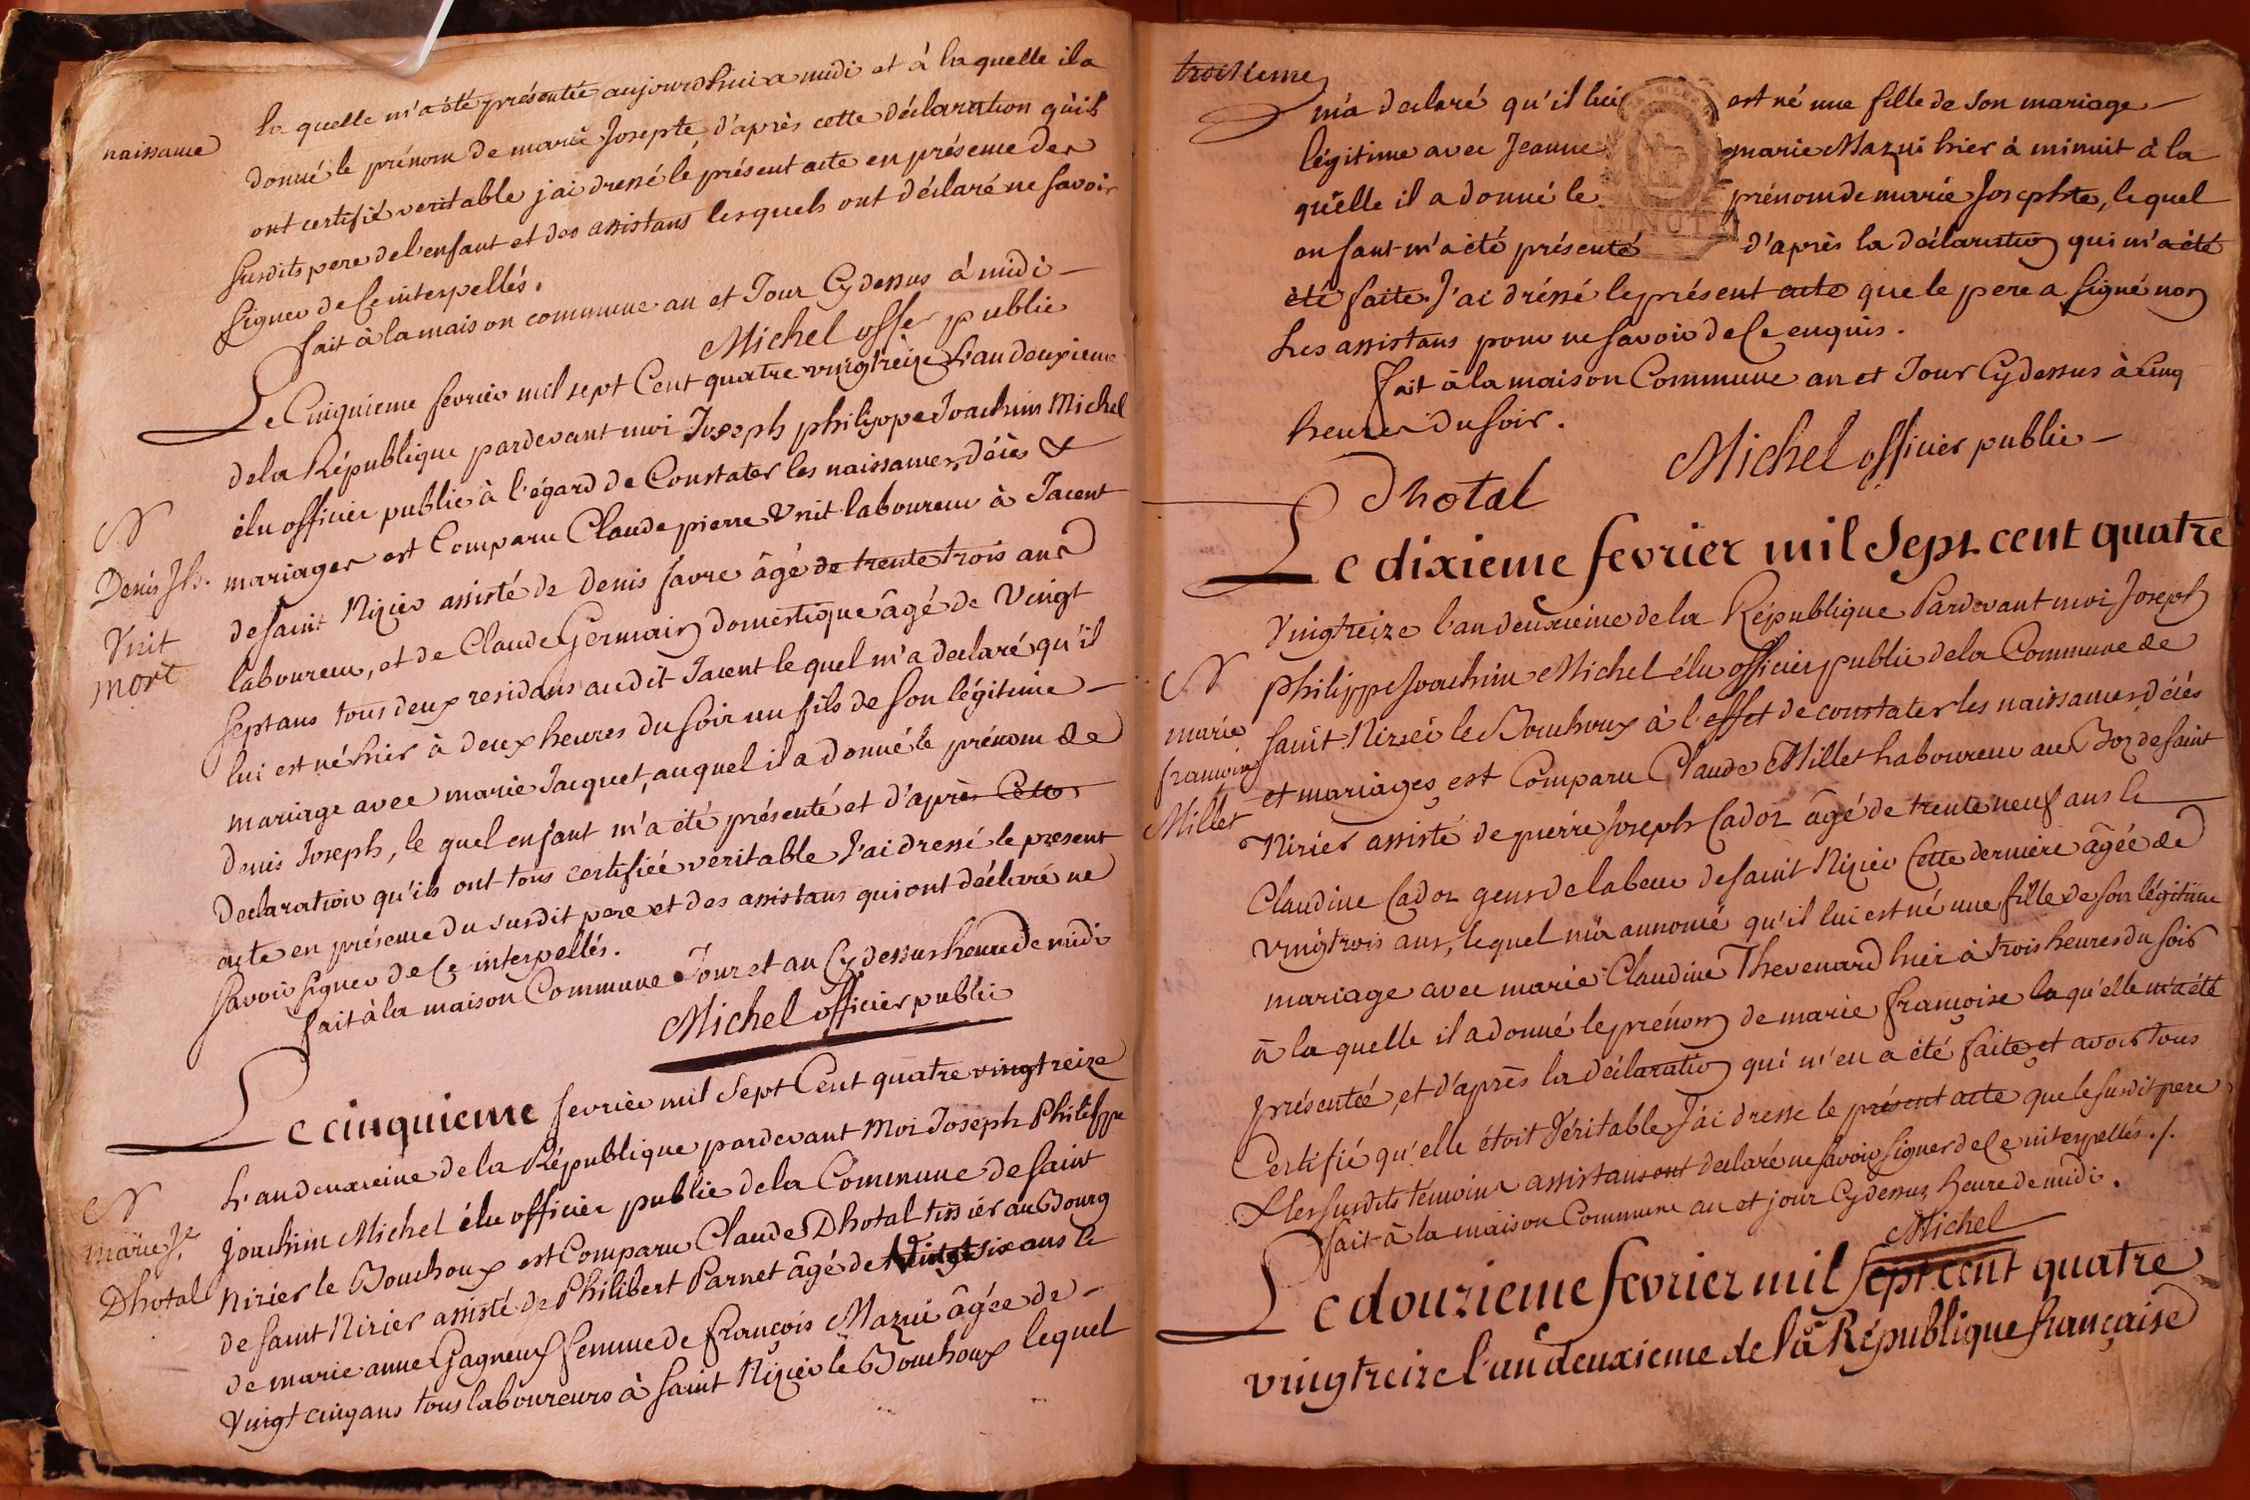 naissance
la quelle m'a été présentée aujourdhui a midi et à la quelle il a
donné le prénom de marie Josepte, d'après cette déclaration qu'ils
ont certifié veritable j'ai dressé le présent acte en présence des
susdits pere de l'enfant et des assistans lesquels ont déclaré ne savoir
signer de ce interpellés.
fait à la maison commune an et Jour Cy dessus à midi —
Michel offer public
Le Cinquieme fevrier mil sept Cent quatre vingt treize L'an deuxieme
de la République pardevant moi Joseph philippe Joachim Michel
élu officier public à l'égard de Constater les naissances, décès &
mariages est Comparu Claude pierre Vuit laboureur à Jacent
de saint Nizier assisté de denis favre âgé de trente trois ans
laboureur, et de Claude Germain domestique âgé de Vingt
sept ans tous deux residans audit Jacent le quel m'a declaré qu'il
lui est né hier à deux heures du soir un fils de son légitime —
mariage avec marie Jacquet, auquel il a donné le prénom de
denis Joseph, le quel enfant m'a été présenté et d'après Cette
declaration qu'ils ont tous certifiée veritable J'ai dressé le present
acte en présence du susdit pere et des assistans qui ont déclaré ne
savoir signer de ce interpellés.
fait à la maison Commune Jour et an Cy dessus heure de midi
Michel officier public
N
Denis Jh.
Vuit
mort
Le cinquieme fevrier mil Sept Cent quatre vingt treize
L'an deuxieme de la République pardevant Moi Joseph Philippe
Joachim Michel élu officier public de la Commune de saint
Nizier le Bouchoux est Comparu Claude Dhotal tissier au Bourg
de saint Nizier assisté de Philibert Parnet âgé de Vingt six ans le
de marie anne Gagneux femme de françois Mazui âgée de —
Vingt cinq ans tous laboureurs à saint Nizier le Bouchoux lequel
N
marie Je
Dhotal
troisieme
m'a declaré qu'il lui est né une fille de son mariage —
légitime avec Jeanne marie Mazui hier à minuit à la
quelle il a donné le prénom de marie Josephte, le quel
enfant m'a été présenté d'après la déclaration qui m'a été
été faite. J'ai dréssé le présent acte que le pere a signé non
Les assistans pour ne savoir de ce enquis.
fait à la maison Commune an et Jour Cy dessus à Cinq
heures du soir.
Michel officier public —
Dhotal
Le dixieme fevrier mil Sept cent quatre
Vingt treize l'an deuxieme de la République Pardevant moi Joseph
philippe Joachim Michel élu officier public de la Commune de
saint Nizier le Bouchoux à l'effet de constater les naissances, décès
et mariages est Comparu Claude Millet laboureur au Boz de saint
Nizier assisté de pierre Joseph Cadoz âgé de trente neuf ans le
Claudine Cadoz gens de labeur de saint Nizier Cette derniere âgée de
vingt trois ans, lequel m'a annoncé qu'il lui est né une fille de son légitime
mariage avec marie Claudine Thevenard hier à trois heures du soir
à la quelle il a donné le prénom de marie françoise la qu'elle m'a été
présentée, et d'après la déclaration qui m'en a été faite, et avoir tous
Certifié qu'elle étoit Véritable J'ai dressé le présent acte que le susdit pere
& les susdits témoins assistans ont declaré ne savoir signer de ce interpellés ./.
fait à la maison Commune an et jour Cy dessus heure de midi.
Michel
N
marie
francoise
Millet
Le douzieme fevrier mil sept cent quatre
vingt treize l'an deuxieme de la République française